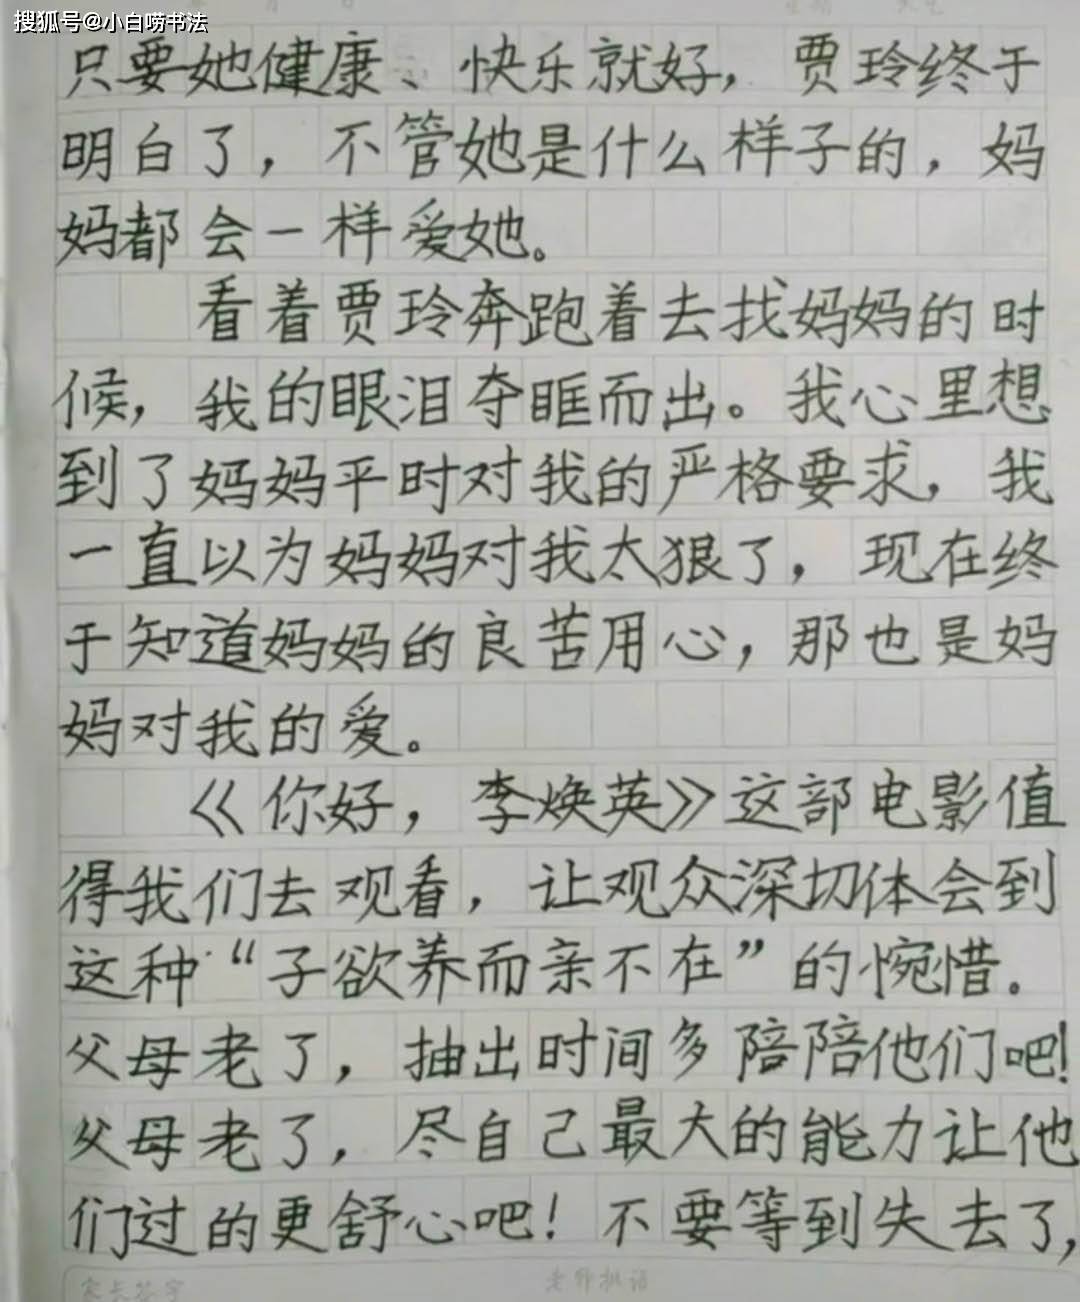 搜狐号@小白唠书法
只要她健康、快乐就好，贾玲终于
明白了，不管她是什么样子的，妈
妈都会一样爱她。
看着贾玲奔跑着去找妈妈的时
候，我的眼泪夺眶而出。我心里想
到了妈妈平时对我的严格要求，我
一直以为妈妈对我太狠了，现在终
于知道妈妈的良苦用心，那也是妈
妈对我的爱。
《你好，李焕英》这部电影值
得我们去观看，让观众深切体会到
这种“子欲养而亲不在”的惋惜。
父母老了，抽出时间多陪陪他们吧！
父母老了，尽自己最大的能力让他
们过的更舒心吧！不要等到失去了，
家长签字
老师批语